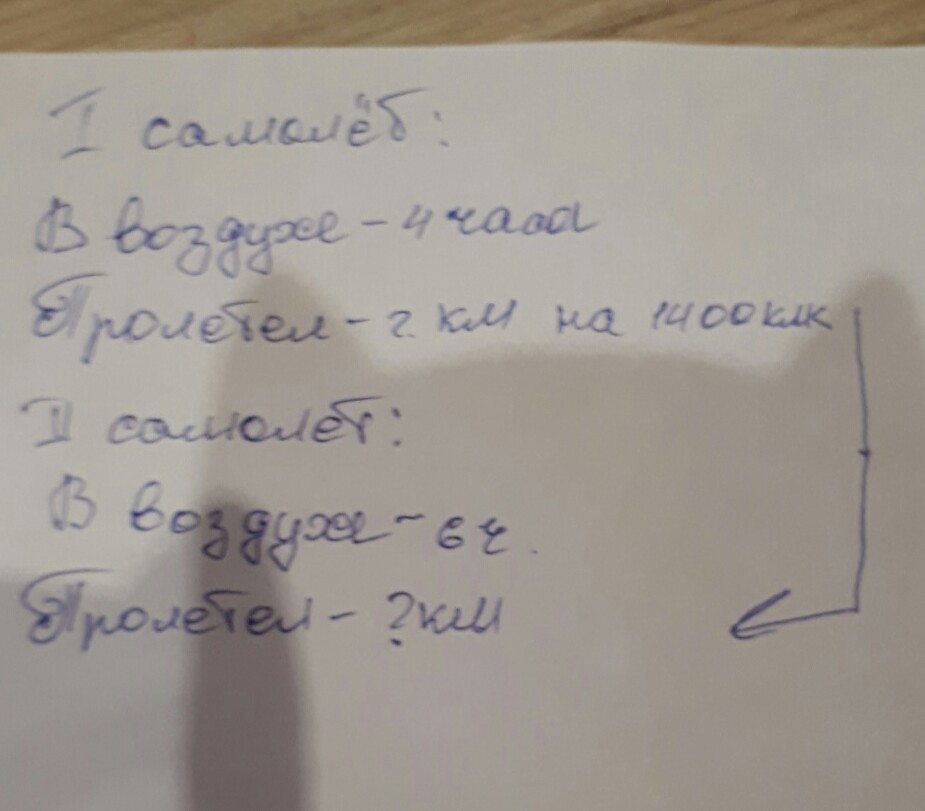 I самолёт:
В воздухе - 4 часа
Пролетел - ? км на 1400 км
II самолёт:
В воздухе - 6 ч.
Пролетел - ? км